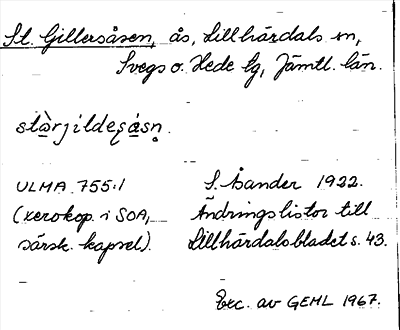 St. Gillersåsen, ås, Lillhärdals sn,
Svegs o. Hede tg, Jämtl. län.
stàrjildeșåsn̥.
ULMA 755:1 S. Åander 1922.
(xerokop. i SOA, Ändringslistor till
särsk. kapsel). Lillhärdalsbladet s. 43.
Exc. av GEHL 1967.